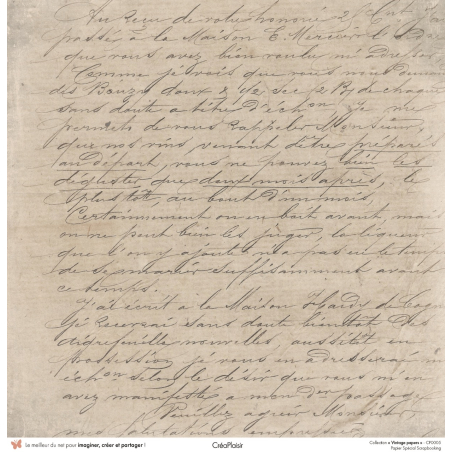 Au reçu de votre honoré 2
passé à la Maison E. Mercier
que vous avez bien voulu m'adresser
Comme je vois que vous nous
des Bouzy doux & 1/2 sec,
sans doute à titre d'échon, je me
permets de vous rappeler Monsieur,
que nos vins venant d'être préparés
au départ, vous ne pouvez bien les
déguster que deux mois après, le
plus tôt, au bout d'un mois,
Certainement on en boit avant, mais
on ne peut bien les juger, la liqueur
que l'on y ajoute n'a pas eu le temps
de se marier suffisamment avant
ce temps.
J'ai écrit à la Maison
je recevrai sans doute bientôt des
d'aigrefeuille nouvelles, aussitôt en
possession je vous en adresserai un
échon selon le désir que vous m'en
avez manifesté à mon der passage
Veuillez agréer Monsieur
mes salutations empressées
Le meilleur du net pour imaginer, créer et partager !
CréaPlaisir
Collection « Vintage papers » - CP0003
Papier Spécial Scrapbooking